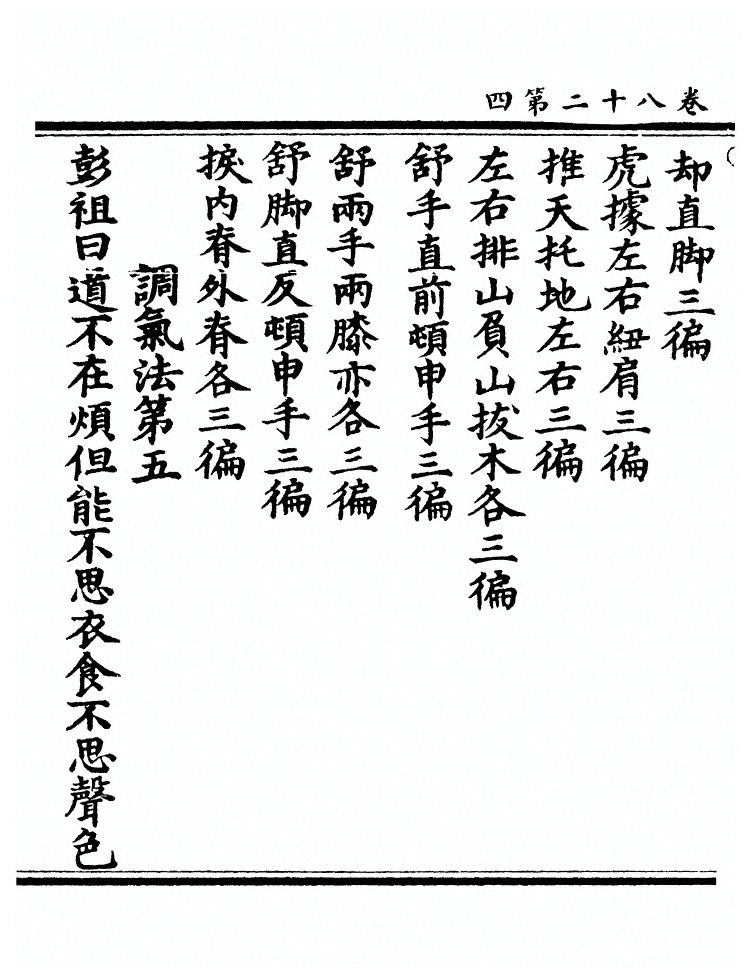 卷八十二第四
却直脚三徧
虎據左右紐肩三徧
推天托地左右三徧
左右排山負山拔木各三徧
舒手直前頓申手三徧
舒兩手兩膝亦各三徧
舒脚直反頓申手三徧
捩內脊外脊各三徧
調氣法第五
彭祖曰道不在煩但能不思衣食不思聲色